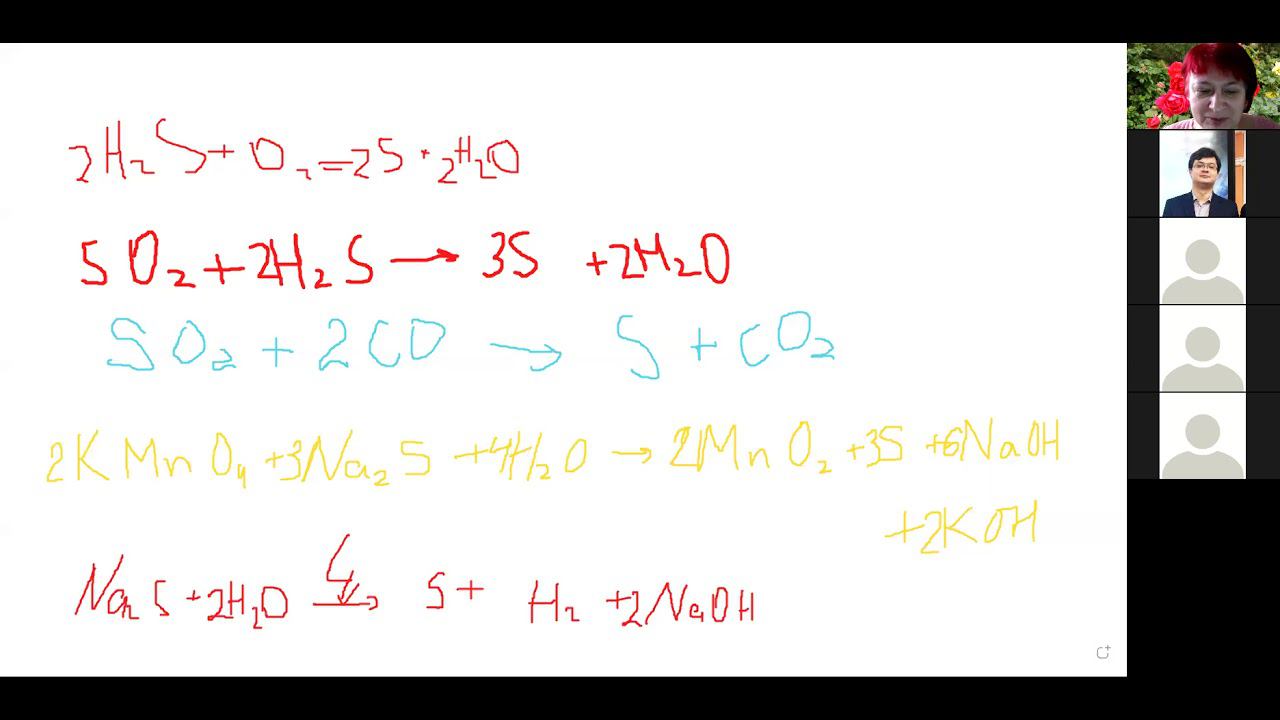 2H₂S + O₂ = 2S · 2H₂O
SO₂ + 2H₂S → 3S + 2H₂O
SO₂ + 2CO → S + CO₂
2KMnO₄ + 3Na₂S + 4H₂O → 2MnO₂ + 3S + 6NaOH
+ 2KOH
Na₂S + 2H₂O → S + H₂ + 2NaOH